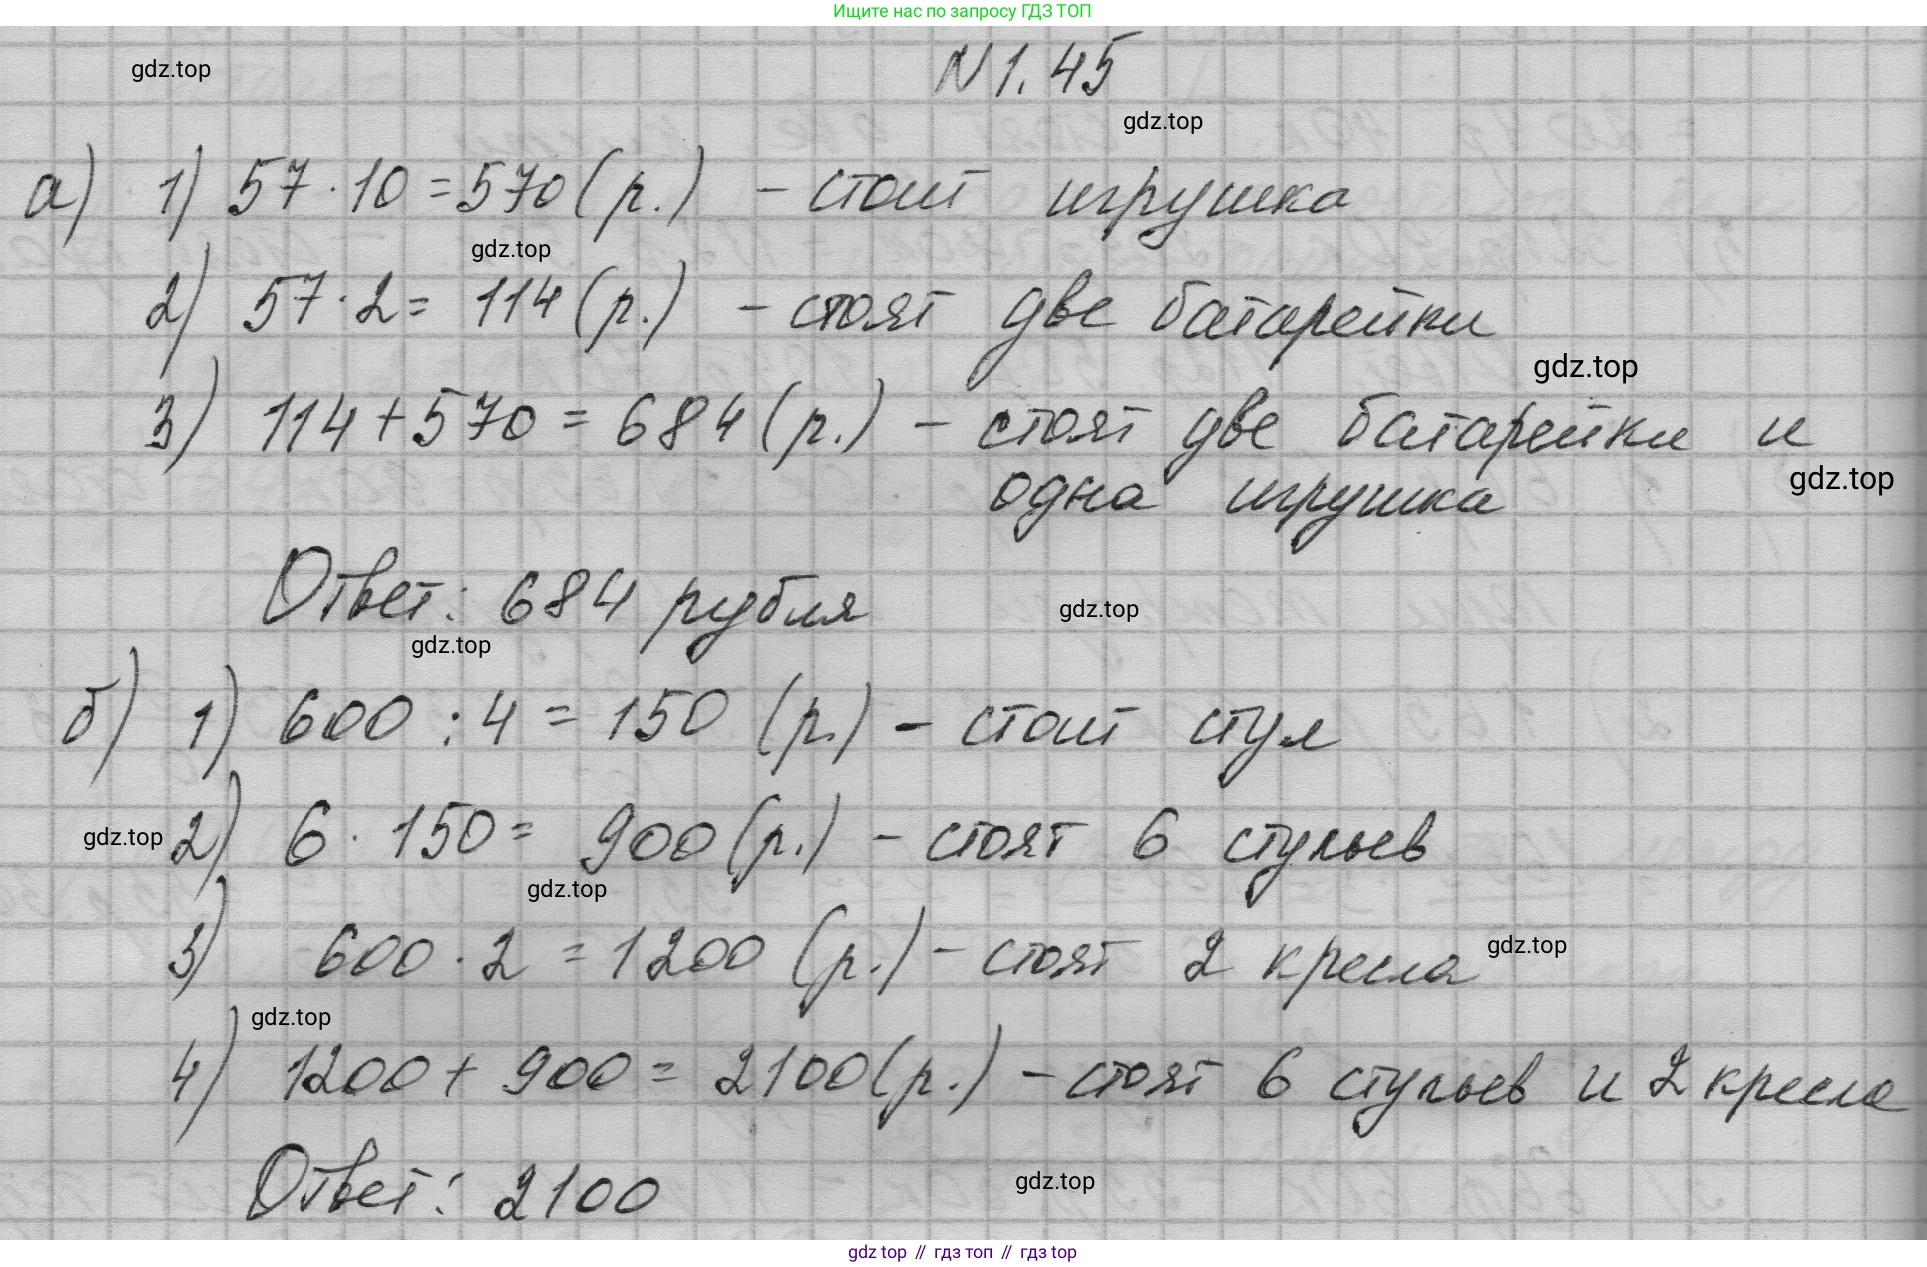 Ищите нас по запросу ГДЗ ТОП
N 1.45
gdz.top
gdz.top
а) 1) 57 · 10 = 570 (р.) - стоит игрушка
gdz.top
2) 57 · 2 = 114 (р.) - стоят две батарейки
gdz.top
3) 114 + 570 = 684 (р.) - стоят две батарейки и
одна игрушка
gdz.top
Ответ: 684 рубля
gdz.top
gdz.top
б) 1) 600 : 4 = 150 (р.) - стоит стул
2) 6 · 150 = 900 (р.) - стоят 6 стульев
gdz.top
gdz.top
3) 600 · 2 = 1200 (р.) - стоят 2 кресла
gdz.top
gdz.top
4) 1200 + 900 = 2100 (р.) - стоят 6 стульев и 2 кресла
Ответ: 2100
gdz.top
gdz top // гдз топ // гдз top